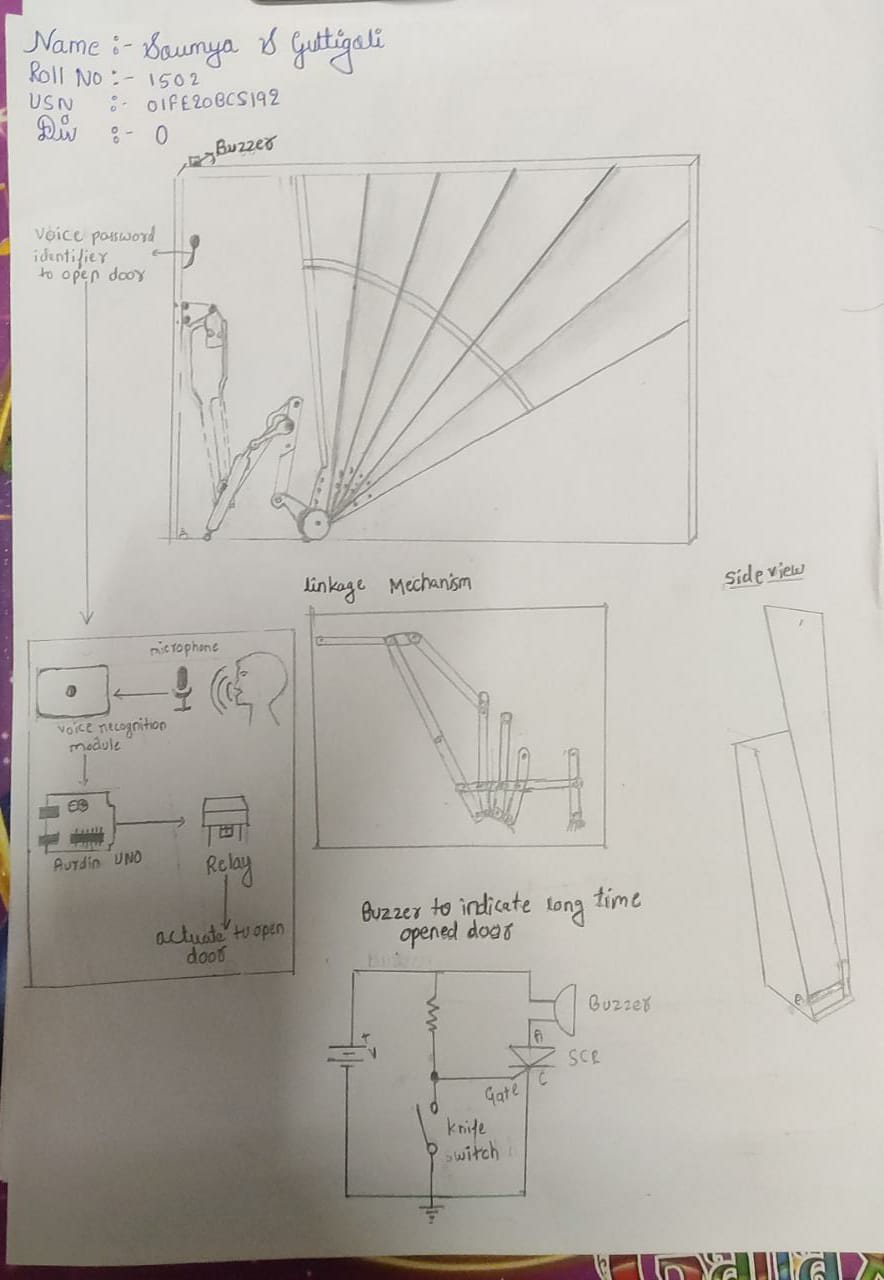 Name :- Saumya S Guttigoli
Roll No :- 1502
USN :- 01FE20BCS192
Div :- O
Buzzer
Voice password
identifier
to open door
linkage Mechanism
side view
microphone
voice recognition
module
Aurdin UNO
Relay
actuate to open
door
Buzzer to indicate long time
opened door
Buzzer
+
V
A
SCR
C
Gate
knife
switch